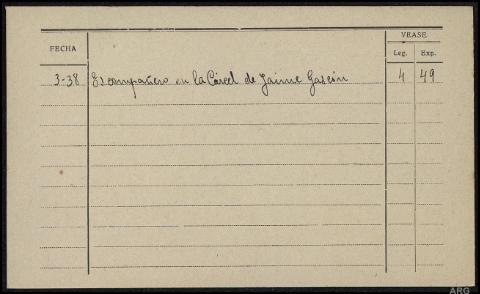 VEASE
FECHA
Leg. Exp.
3-38 Es compañero en la Cárcel de Jaime Gascón 4 49
ARG